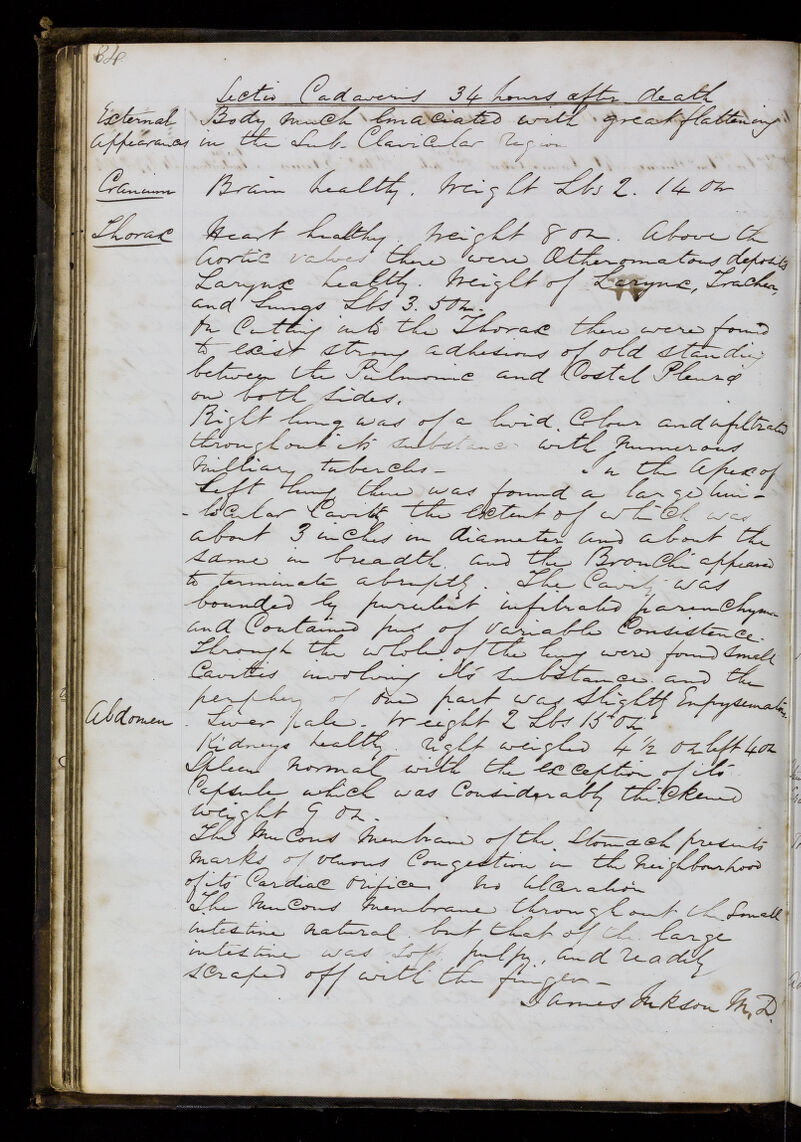 84
Sectio Cadaveris 34 hours after death
External Appearances
Body much Emaciated with great flattening
in the Sub-Clavicular region
Cranium
Brain healthy. Weight Lbs 2. 14 oz
Thorax
Heart healthy Weight 8 oz. Above the
Aortic valves there were Atheromatous deposits
Larynx healthy. Weight of Larynx, Trachea,
and Lungs Lbs 3. 5 oz.
On Cutting into the Thorax there were found
to exist strong adhesions of old standing
between the Pulmonic and Costal Pleurae
on both sides.
Right lung was of a livid Colour and infiltrated
throughout its substance with numerous
Milliary tubercles - In the Apex of
Left lung there was found a large
-locular Cavity the extent of which was
about 3 inches in diameter and about the
same in breadth and the Bronchi appeared
to terminate abruptly. The Cavity was
bounded by purulent infiltrated parenchyma
and Contained pus of variable Consistence.
Through the whole of the lung were found small
Cavities involving its substance and the
periphery of one part was slightly Emphysematous.
Abdomen
Liver pale. Weight 2 Lbs 15 oz
Kidneys healthy. right weighed 4 ½ oz left 4 oz
Spleen normal with the exception of its
Capsule which was Considerably thickened
weight 9 oz.
The Mucous Membrane of the Stomach presents
marks of venous Congestion in the Neighbourhood
of its Cardiac Orifice. No Ulceration
The Mucous Membrane throughout the Small
intestine natural but that of the large
intestine was soft pulpy, and readily
scraped off with the finger -
James Inkson M.D.